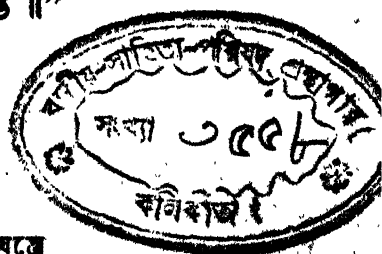 ॥”
বঙ্গীয়-সাহিত্য-পরিষদ্ গ্রন্থাগার
সংখ্যা ৩৫৫৮
কলিকাতা।
যন্ত্রে